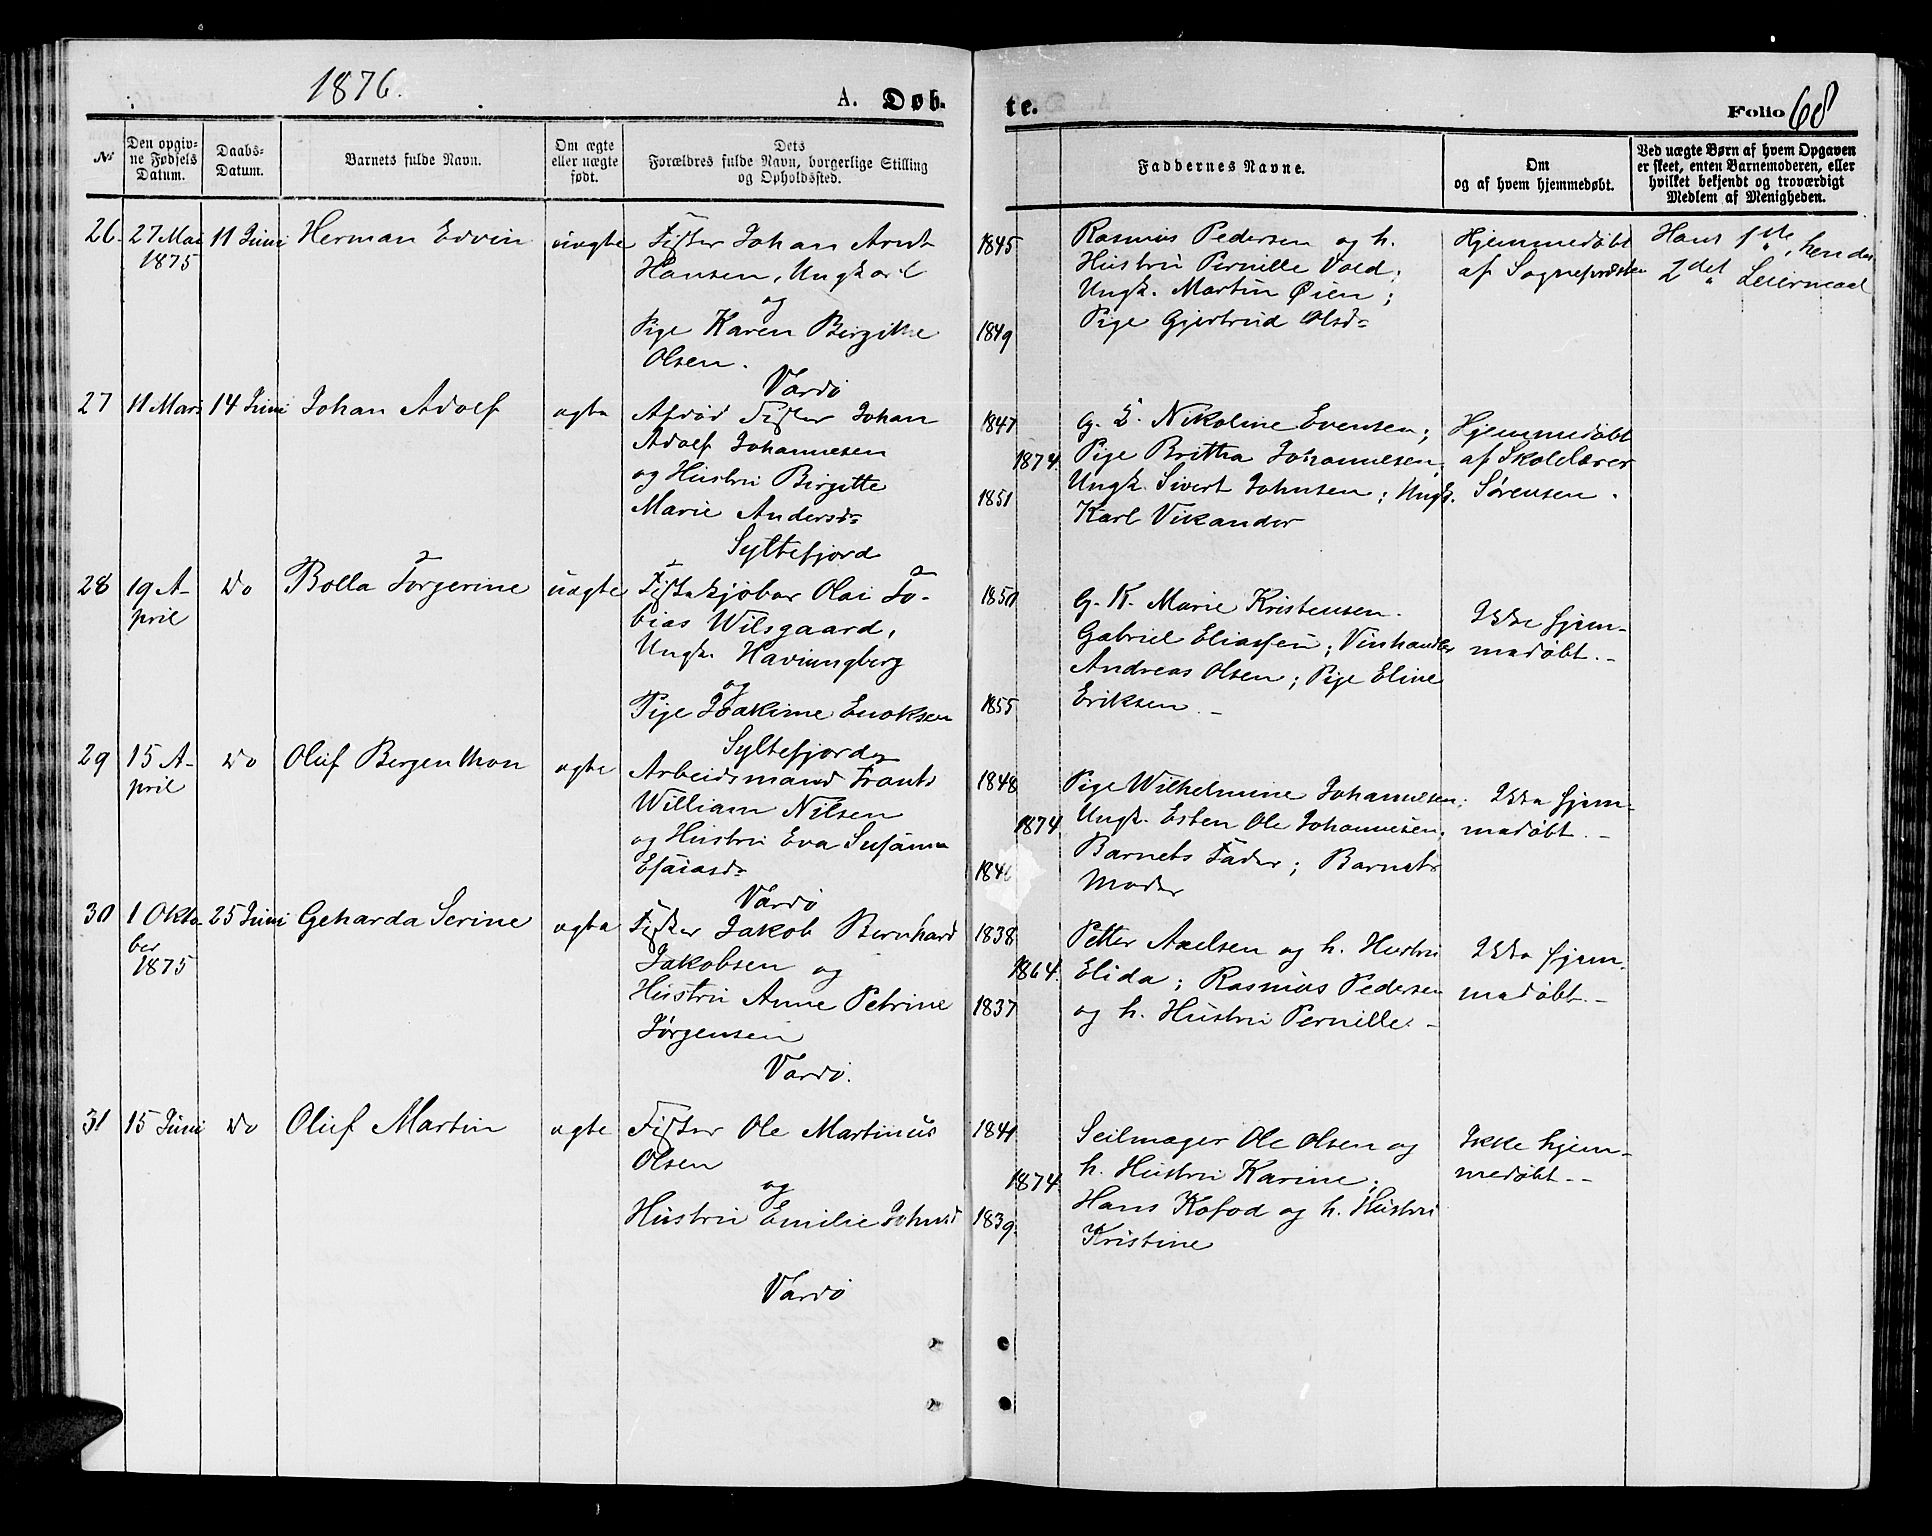 1876.
A. Døb-
te.
Folio 68
№
Den opgiv-
ne Fødsels
Datum.
Daabs-
Datum.
Barnets fulde Navn.
Om ægte
eller uægte
født.
Dets
Forældres fulde Navn, borgerlige Stilling
og Opholdssted.
Faddernes Navne.
Om
og af hvem hjemmedøbt.
Ved uægte Børn af hvem Opgaven
er skeet, enten Barnemoderen, eller
hvilket bekjendt og troværdigt
Medlem af Menigheden.
26. 27 Mai 11 Juni Herman Edvin uægte Fisker Johan Arnt
1875 Hansen, Ungkarl
og
Pige Karen Birgitte
Olsen.
Vardö
1845 Rasmus Pedersen og h.
Hustru Pernille Vold;
Ungk. Martin Øien;
1849 Pige Gjertrud Olsd=
Hjemmedøbt
af Sognepræsten
Hans 1ste, hendes
2det Leiermaal
27 11 Mars 14 Juni Johan Adolf ægte Afdöd Fisker Johan
Adolf Johannesen
og Hustru Birgitte
Marie Andersd=
Syltefjord
1847 G. K. Nikoline Evensen;
1874. Pige Britha Johannesen;
1851 Ungk. Sivert Johnsen; Ungk.
Karl Vikander
Hjemmedøbt
af Skolelærer
Sørensen.
28 19 A- Do Bolla Torgerine uægte Fiskekjøber Olai To-
pril bias Wilsgaard,
Ungk. Havningberg
og
Pige Joakime Enoksen
Syltefjord
1850 G. K. Marie Kristensen.
Gabriel Eliassen; Vinhandler
Andreas Olsen; Pige Eline
1855 Eriksen. -
Ikke hjem-
medøbt. -
29 15 A- Do Oluf Bergenthon ægte Arbeidsmand Frants
pril William Nilsen
og Hustru Eva Susanna
Esaiasd=
Vardö
1848 Pige Wilhelmine Johannesen;
1874. Ungk. Esten Ole Johannesen;
1846 Barnets Fader; Barnets
Moder
Ikke hjem-
medøbt. -
30 1 Okto 25 Juni Geharda Serine ægte Fisker Jakob Bernhard
ber Jakobsen og
1875 Hustru Anne Petrine
Jørgensen
Vardö.
1838 Petter Axelsen og h. Hustru
1864. Elida; Rasmus Pedersen
1837 og h. Hustru Pernille. -
Ikke hjem-
medøbt. -
31 15 Juni Do Oluf Martin ægte Fisker Ole Martinus
Olsen
og
Hustru Emilie Johnsd
Vardö
1841 Seilmager Ole Olsen og
1874. h. Hustru Karine;
1839. Hans Kofod og h. Hustru
Kristine
Ikke hjem-
medøbt. -